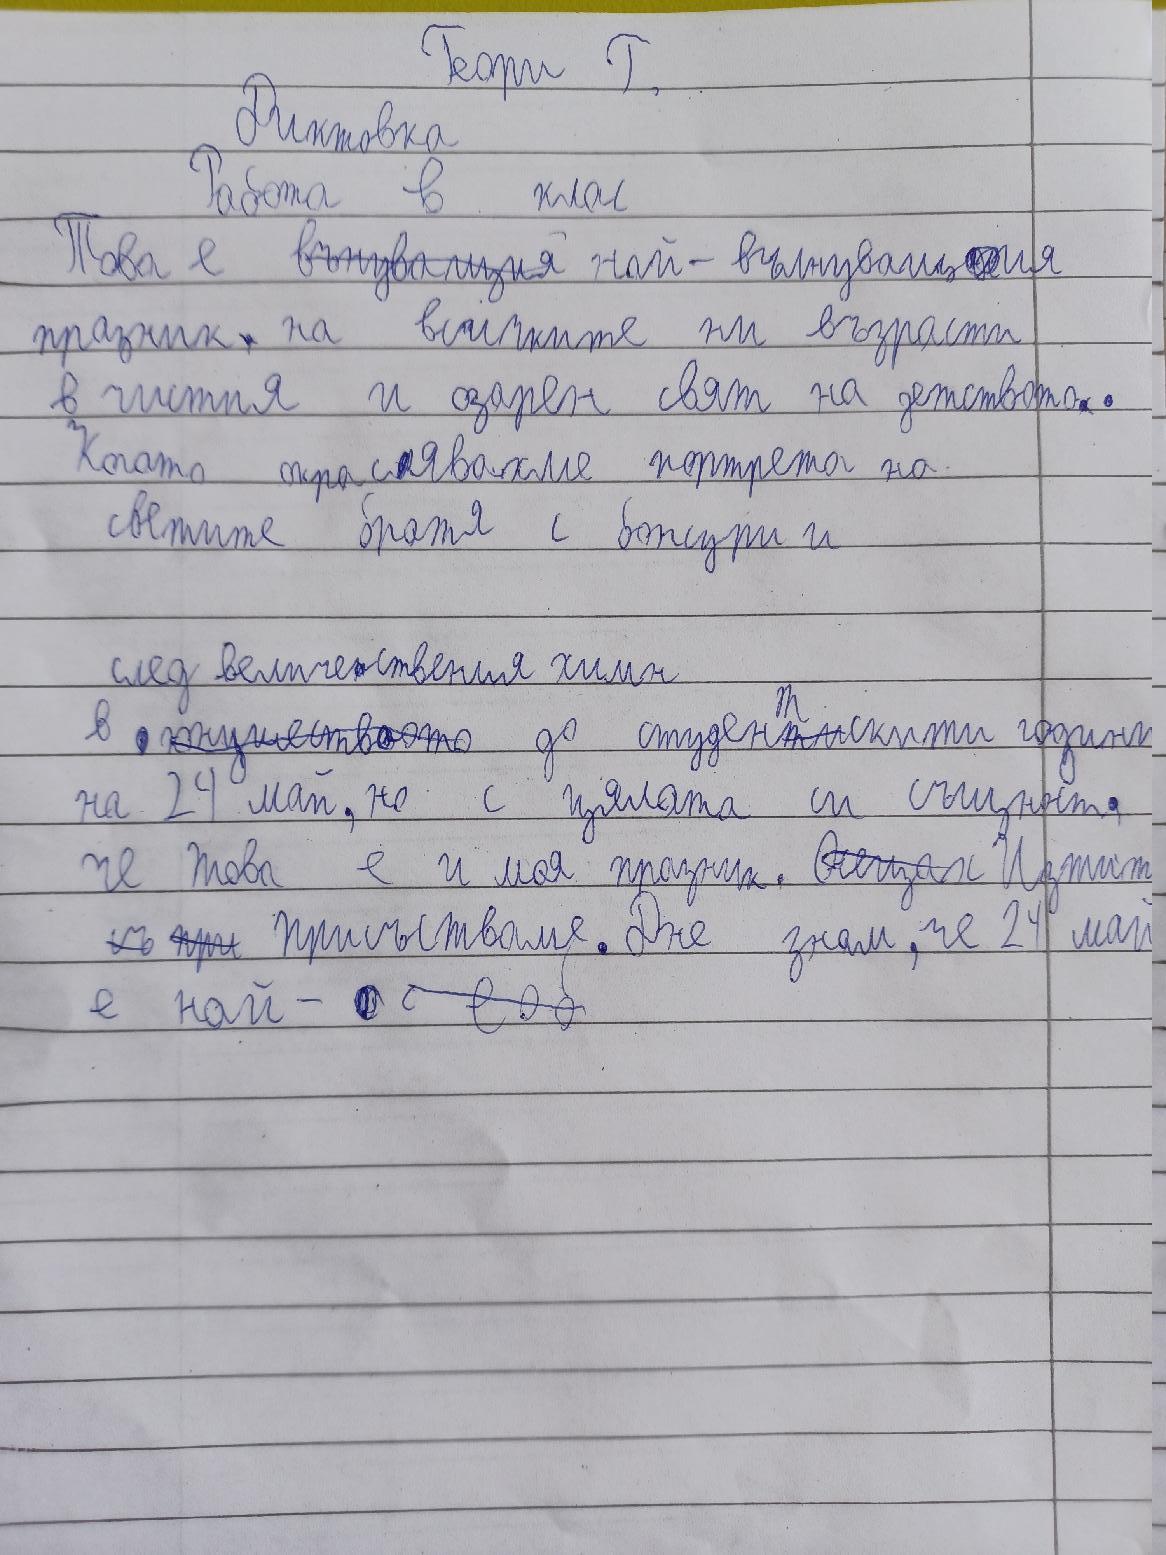 Геори Г.
Диктовка
Работа в клас
Това е вънуващия най-вълнуващия
празник на всичките ни възрасти
в чистия и озарен свят на детството.
Когато окрасявахме портрета на
светите братя с божури и
след величествения химн
в до студентскити години
на 24 май, но с цялата си същност,
че това е и моя празник. Изпит
присъстваме. Дне знам, че 24 май
е най-